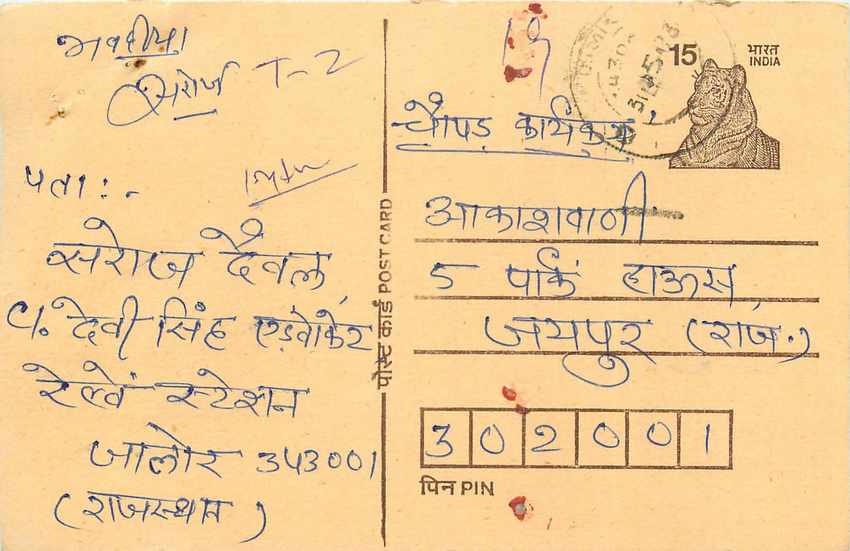 भवदीया
सरोज
T-2
पता :-
सरोज देवल,
C/o देवी सिंह एडवोकेट
रेल्वे स्टेशन
जालोर 343001
(राजस्थान)
पोस्ट कार्ड POST CARD
15 भारत
INDIA
चौपड़ कार्यक्रम,
आकाशवाणी
5 पार्क हाऊस,
जयपुर (राज.)
302001
पिन PIN